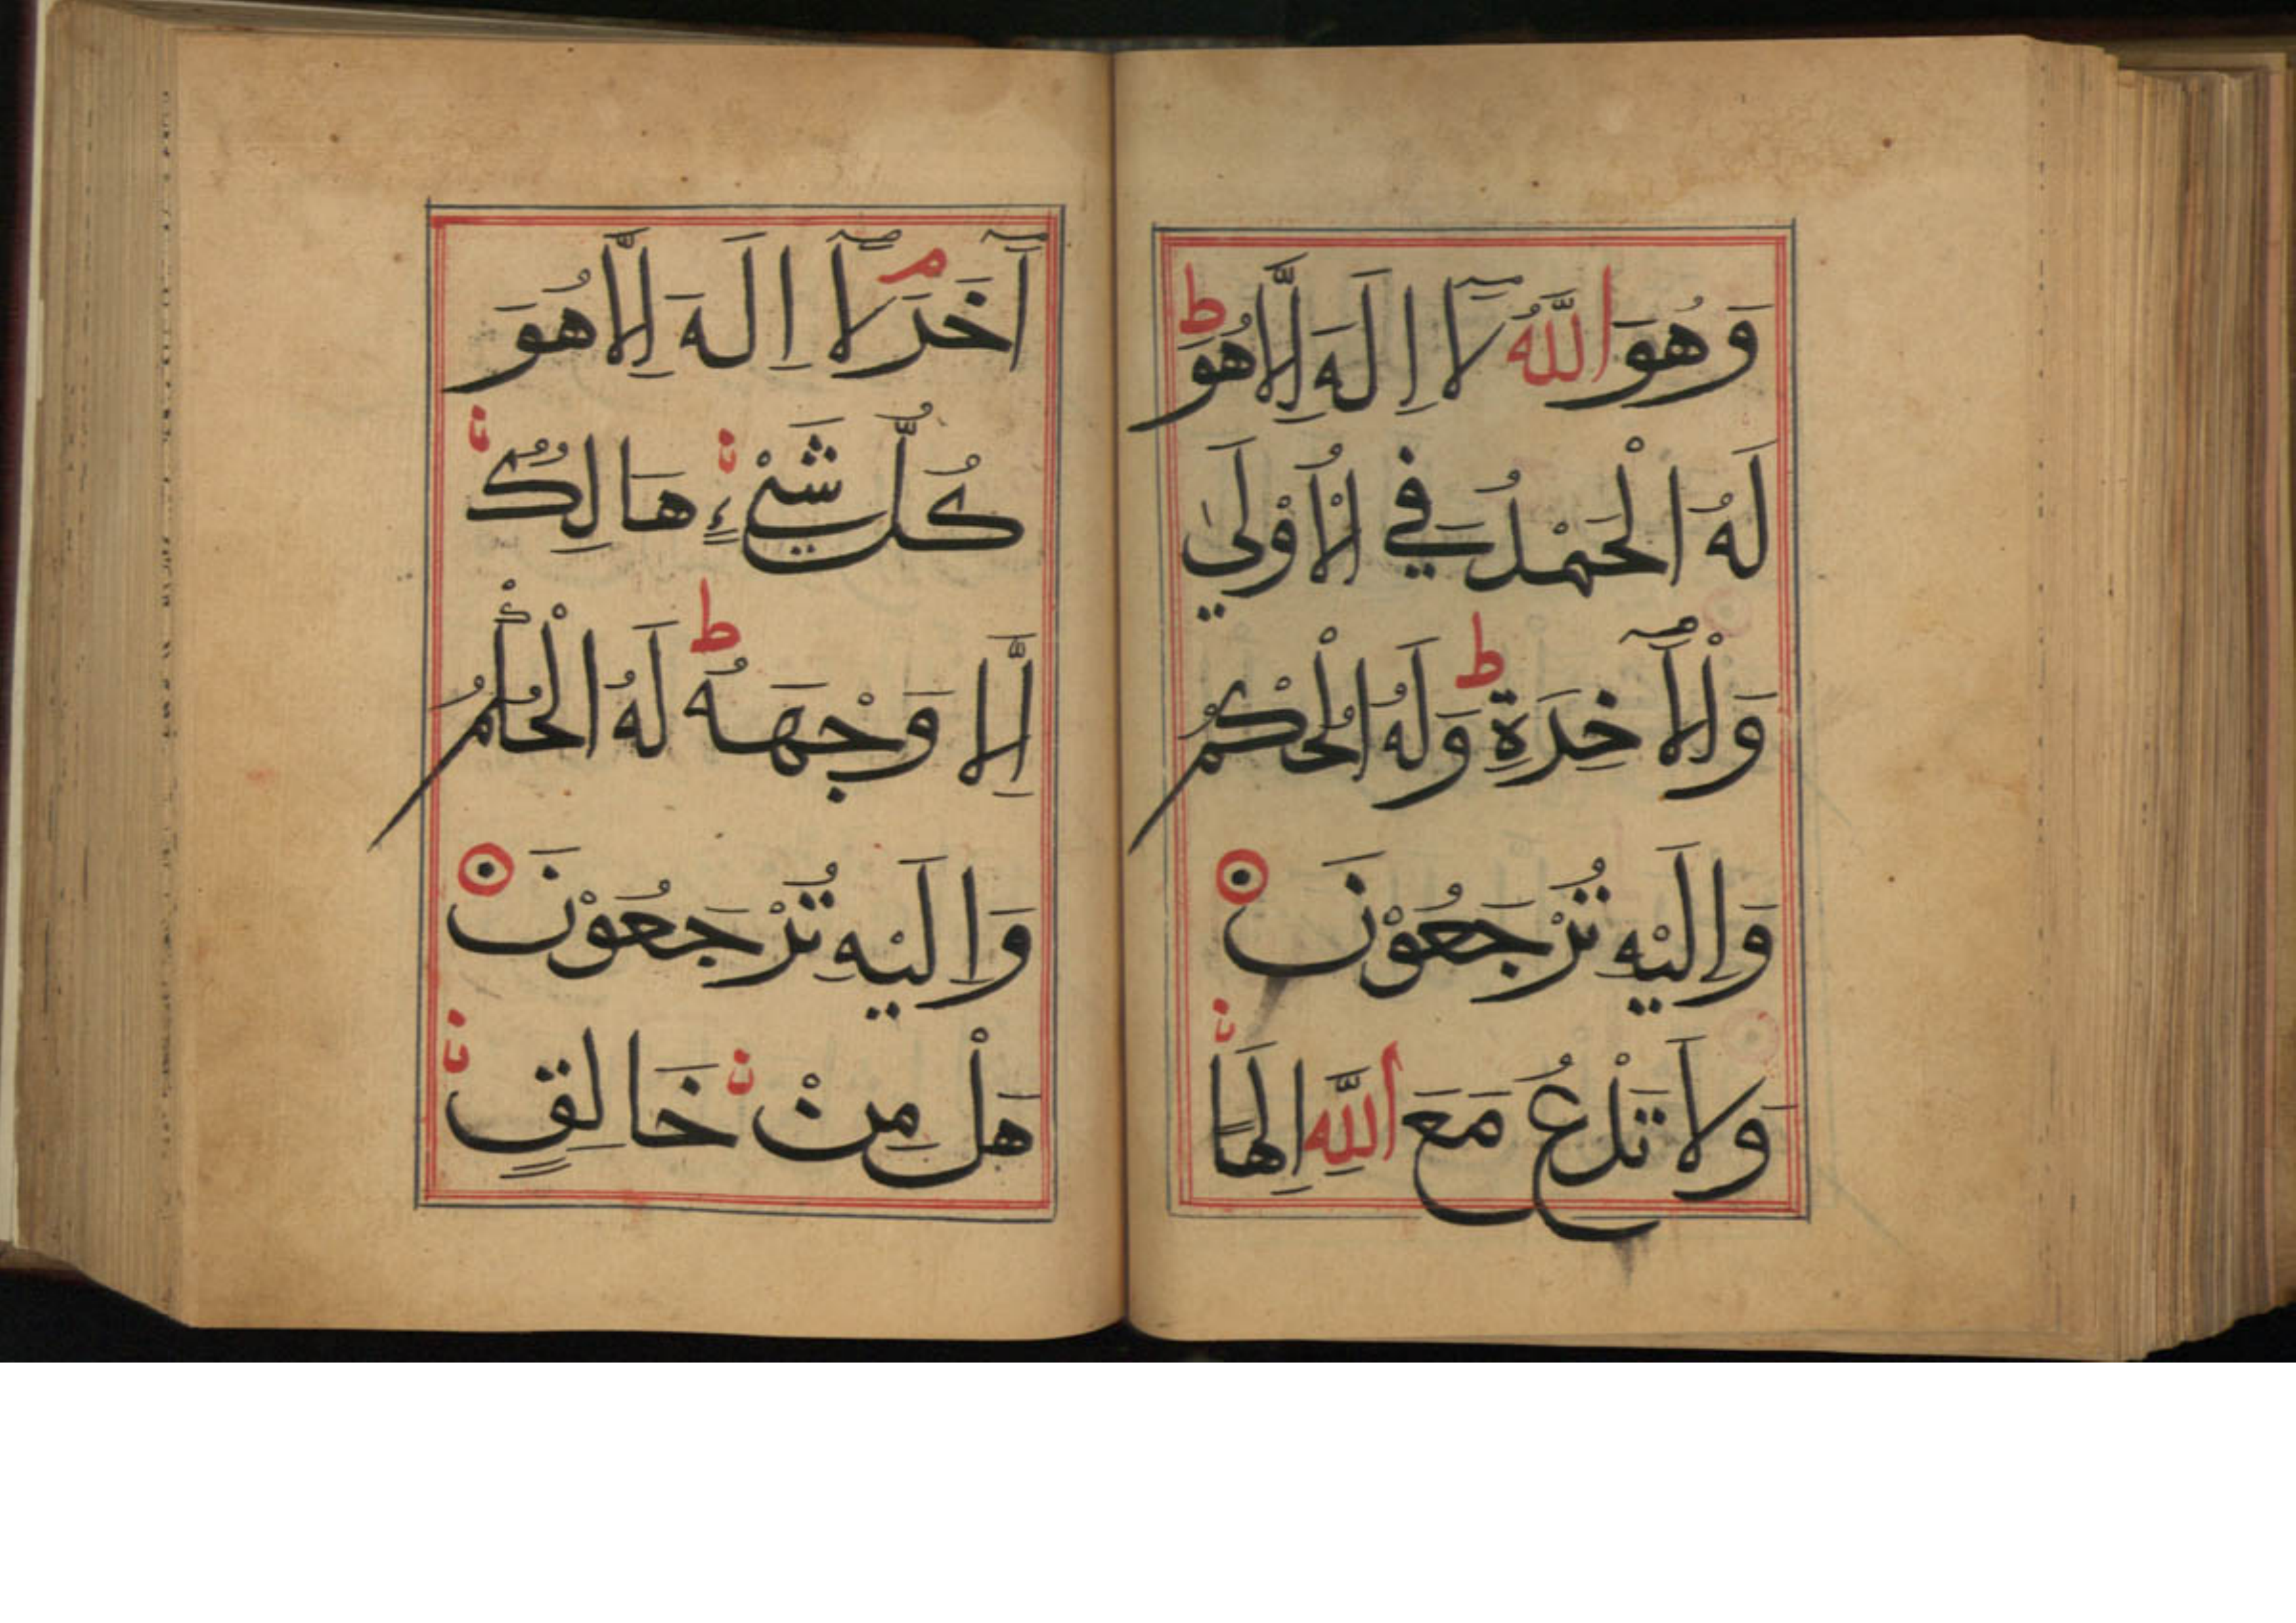 وَهُوَ اللّٰهُ لَآ اِلَهَ اِلَّا هُوَ ؕ
لَهُ الْحَمْدُ فِي الْاُوْلَىٰ
وَالْاٰخِرَةِ ؕ وَلَهُ الْحُكْمُ
وَاِلَيْهِ تُرْجَعُوْنَ ۝
وَلَا تَدْعُ مَعَ اللّٰهِ اِلٰهًا
آخَرَ ۘ لَآ اِلَهَ اِلَّا هُوَ
كُلُّ شَيْءٍ هَالِكٌ
اِلَّا وَجْهَهُ ؕ لَهُ الْحُكْمُ
وَاِلَيْهِ تُرْجَعُوْنَ ۝
هَلْ مِنْ خَالِقٍ